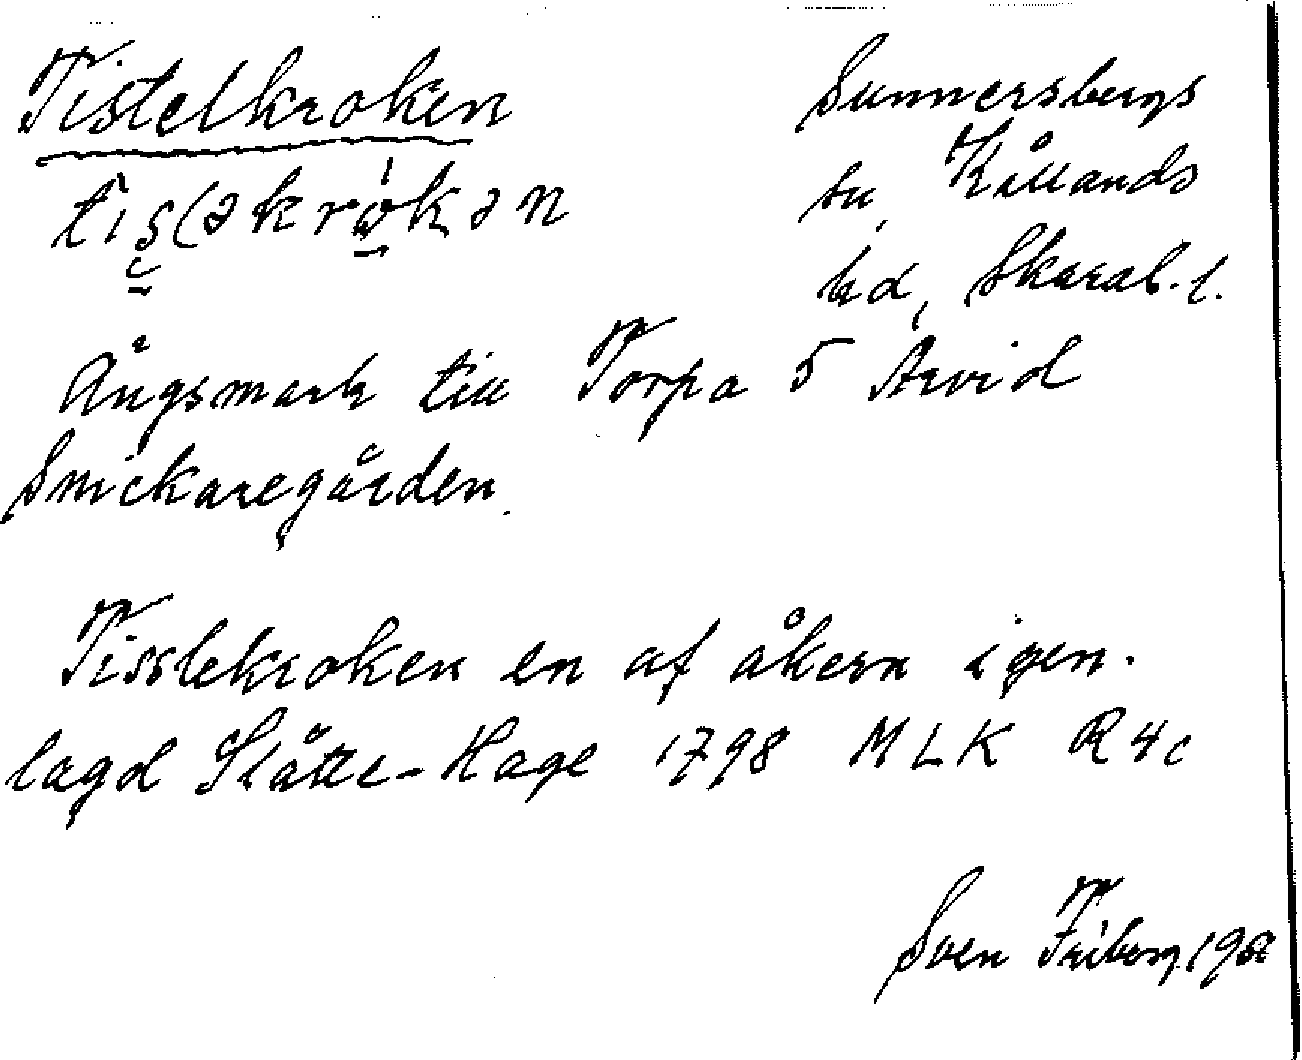 Tistelkroken
Sunnersbergs
sn, Kållands
hd, Skarab. l.
Ängsmark till Torpa 5 Arvid
Snickaregården.
Tisslekroken en af åkern igen-
lagd Slåtte-Hage 1798 MLK R4c
Sven Friberg